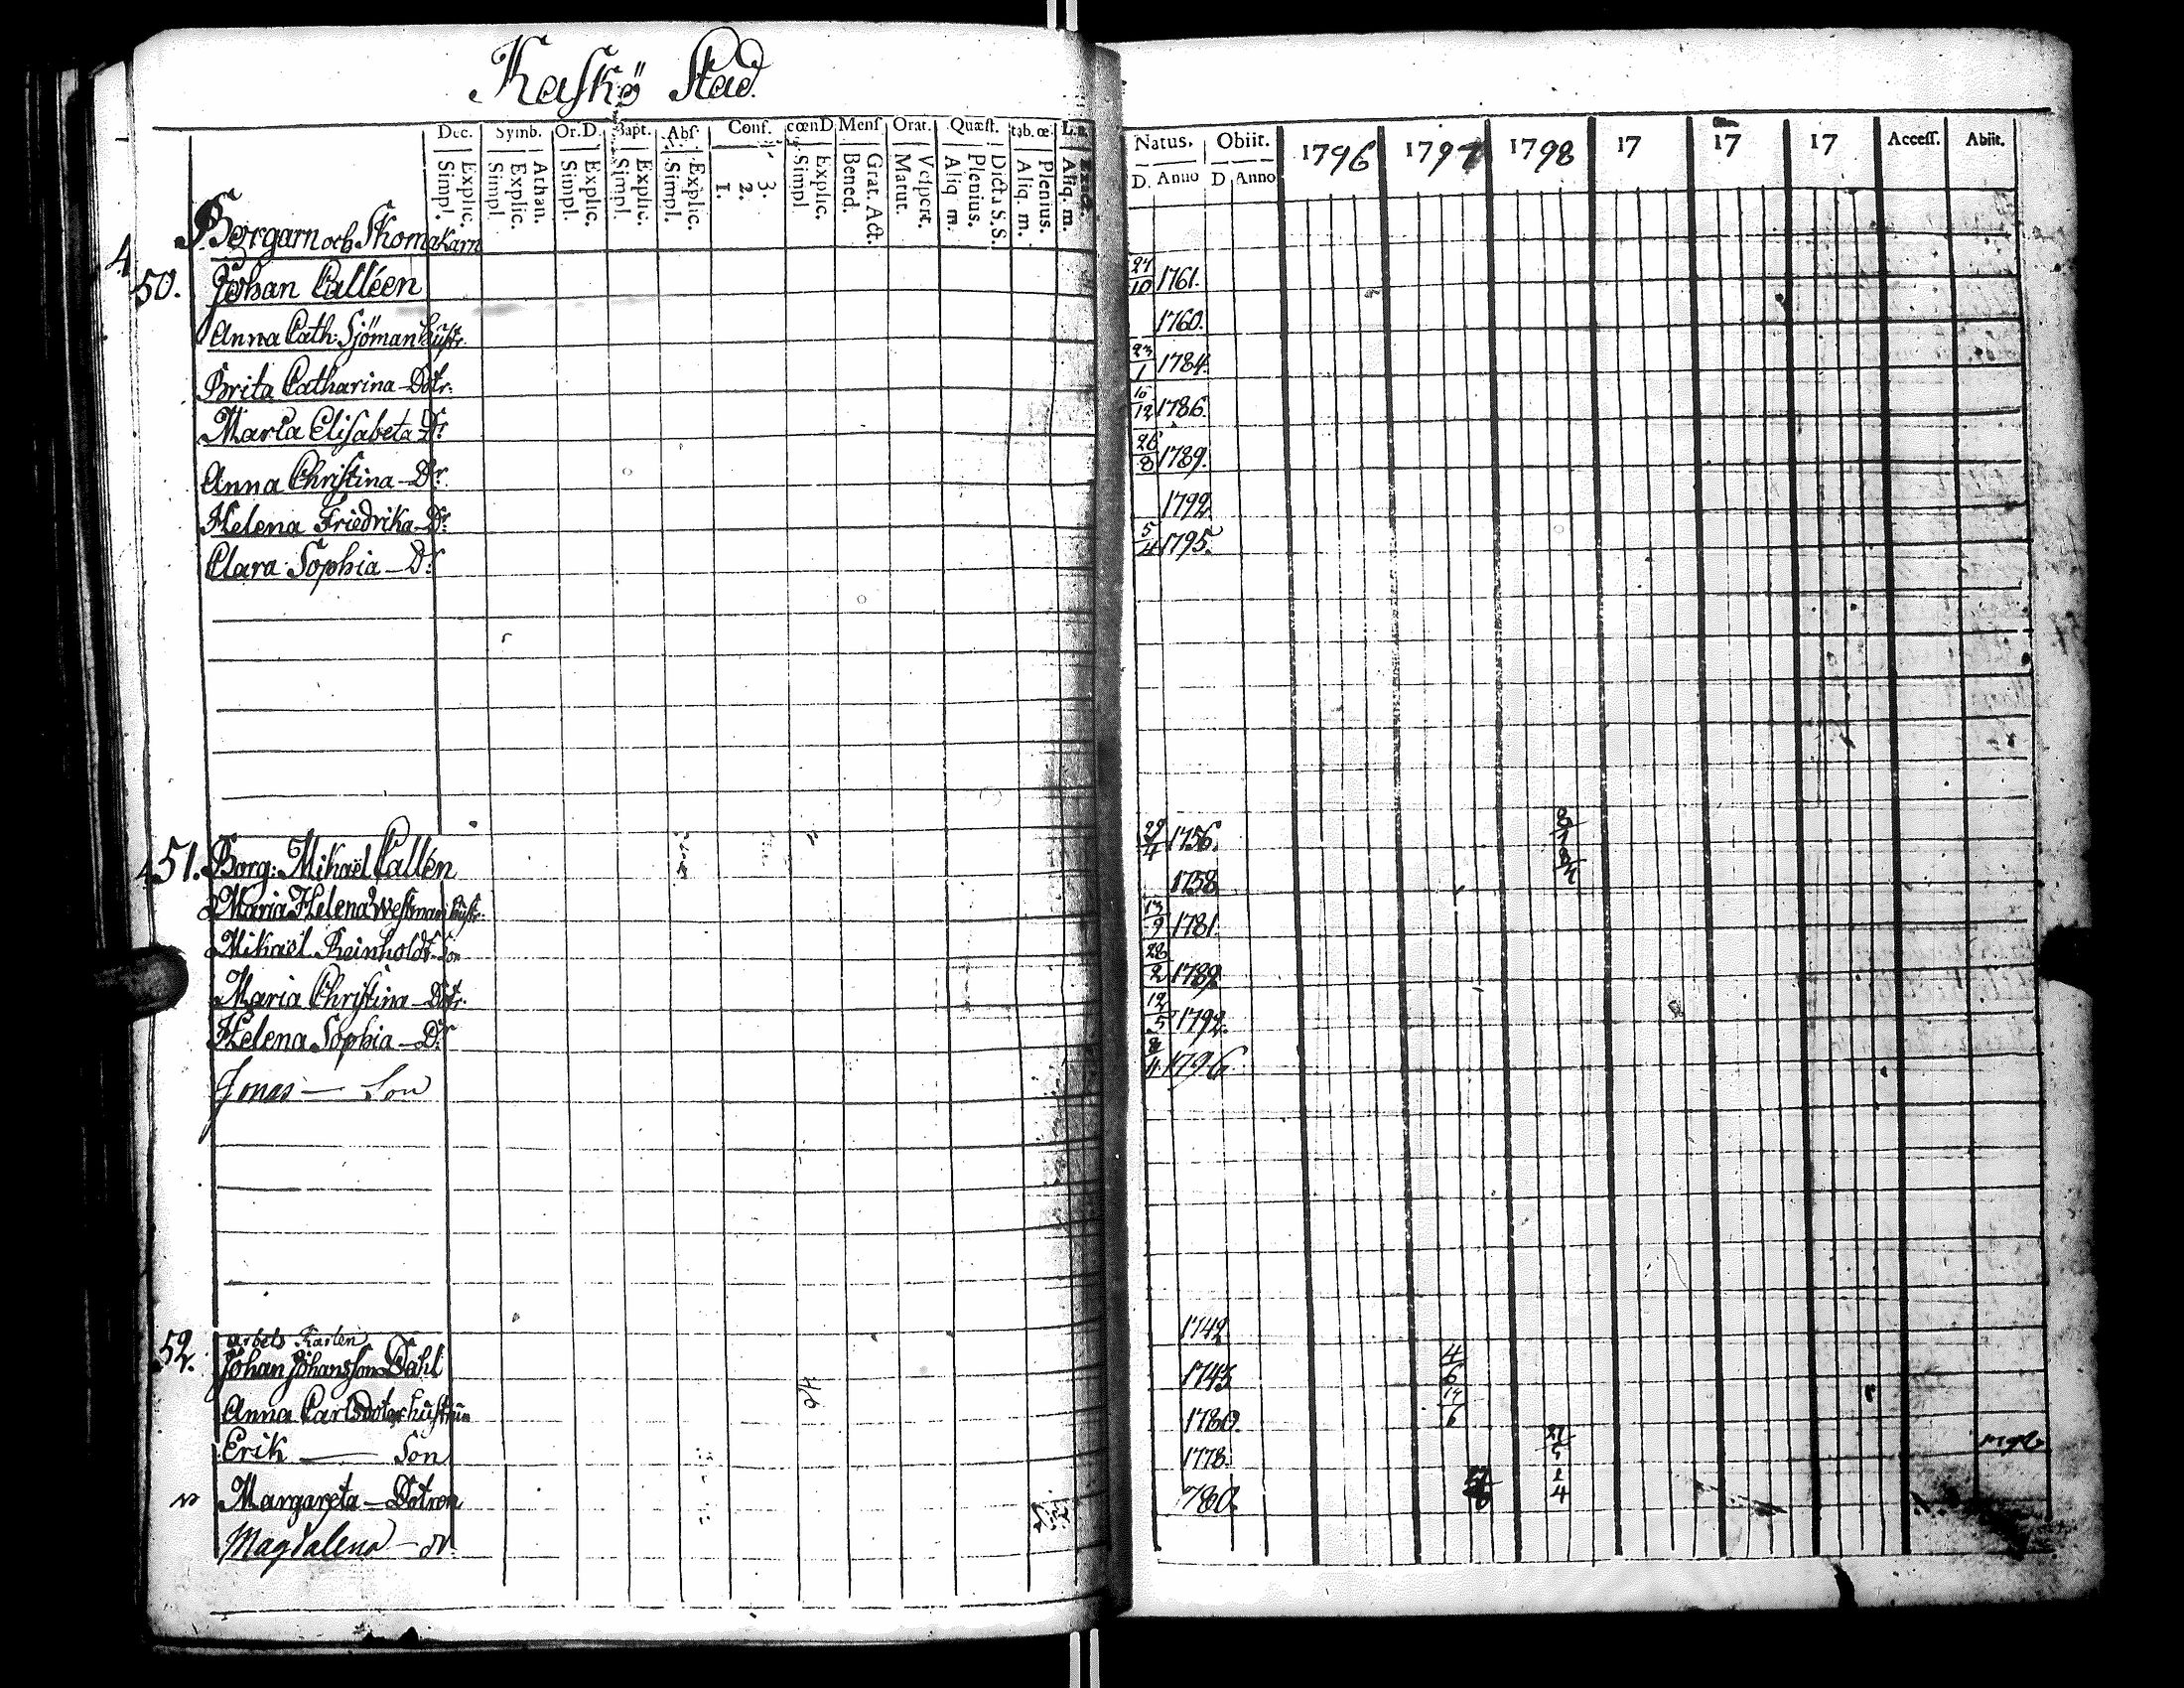 Kaskö Stad
Dec. Symb. Or.D. Bapt. Abs. Conf. cœnD Mens. Orat. Quæst. tab.œ. Natus. Obiit. 1796 1797 1798 17 17 17 Access. Abiit.
Explic. Simpl. Athan. Explic. Simpl. Explic. Simpl. Explic. Simpl. Explic. Simpl. 3. 2. 1. Explic. Simpl. Grat. Act. Bened. Vespert. Matut. Dicta S.S. Plenius. Aliq. m. Plenius. Aliq. m. Exact. Aliq. m. D. Anno D Anno
Borgarn och Skomakarn
50. Johan Calléen 27/10 1761.
Anna Cath: Sjöman hustr. 1760.
Brita Catharina - Dotr. 23/1 1784.
Maria Elisabeta - Dr. 16/12 1786.
Anna Christina - Dr. 26/8 1789.
Helena Friedrika - Dr. 1792.
Clara Sophia - Dr. 5/4 1795.
51. Borg: Mikaël Callén 29/4 1756.
Maria Helena Westman hustr. 1758
Mikaël Reinholdt - Son 13/9 1781.
Maria Christina - Dotr. 28/2 1789.
Helena Sophia - Dr. 12/5 1792.
Jonas — Son 8/11 1796
52. arbets Karlen
Johan Johansson Dahl 1742
Anna Carlsdoter hustrun 1743 4/6
Erik — Son 1780. 14/6
Margareta - Dotren 1778.
Magdalena - Dr. 1780. 4